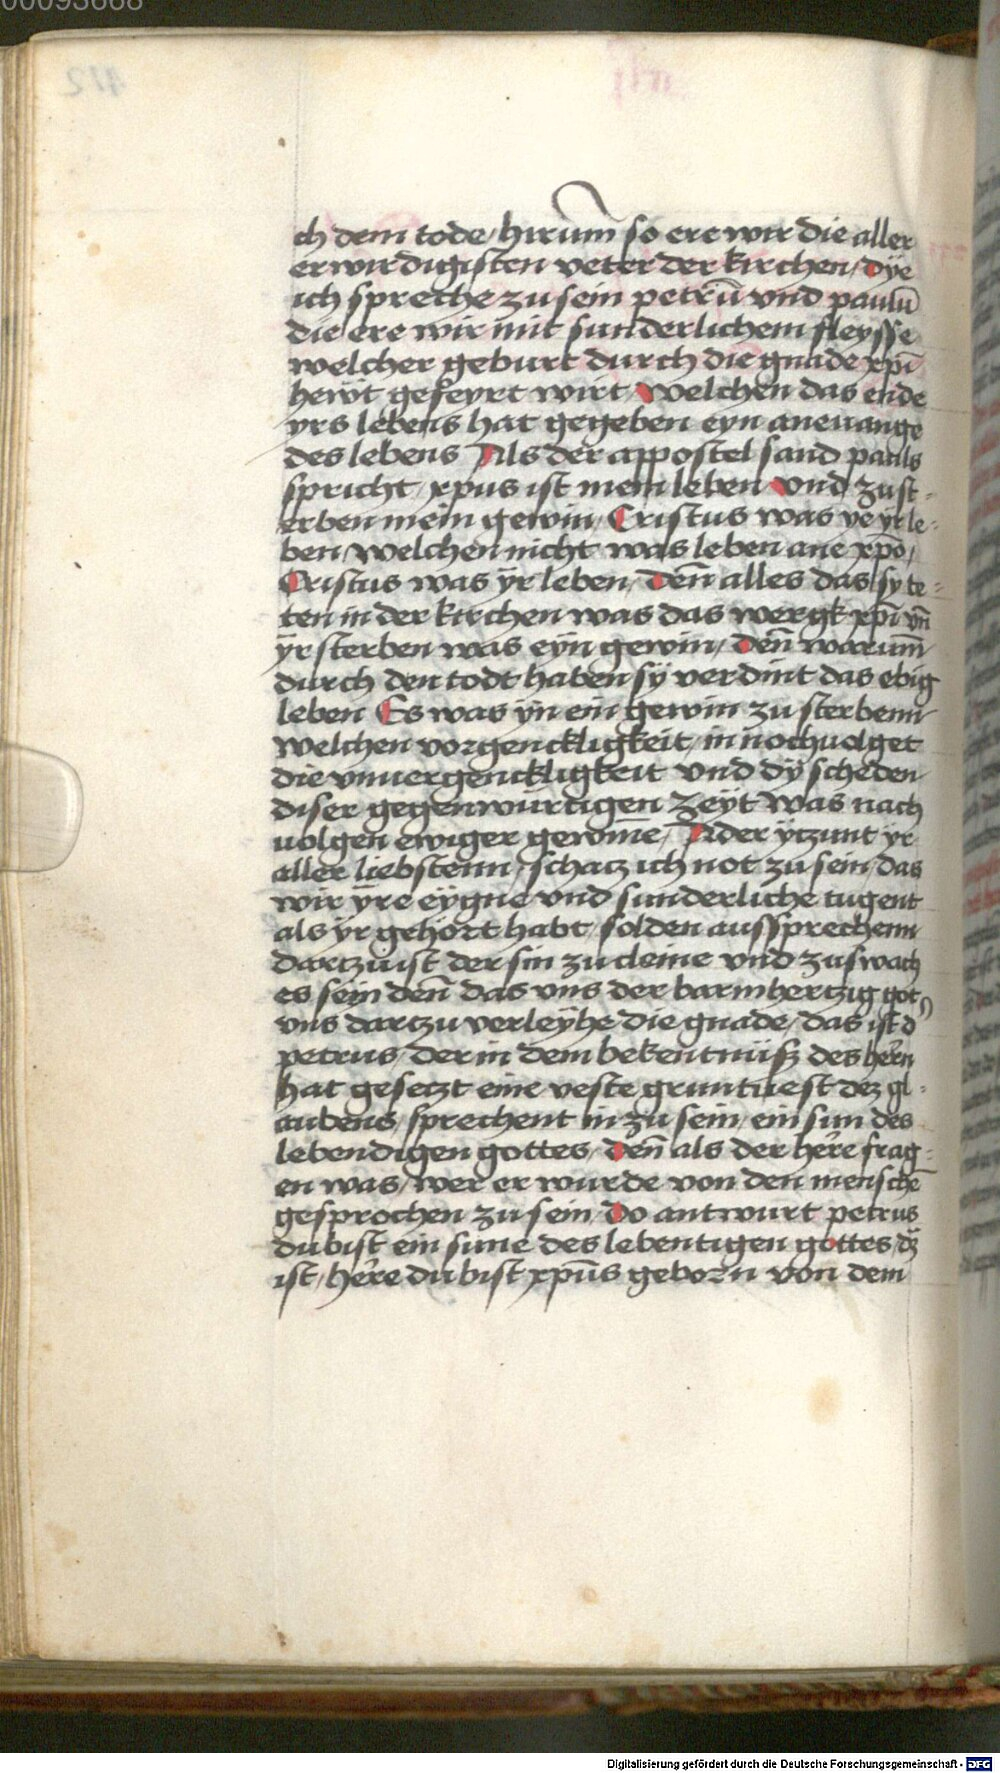 00093668
ch dem tode / hirum̄ so ere wir die aller
erwirdigisten veter der kirchen / dÿe
ich spreche zu sein petrū vnd paulū
die ere wir mit sunderlichem fleysse
welcher geburt durch die gnade xp̄i
hewt gefeyrt wirt / welchen das ende
yrs lebens hat gegeben eyn aneuange
des lebens Als der appostel sand pauls
spricht / xp̄us ist mein leben vnd zu st-
erben mein gewin / Cristus was ye yr le-
ben / welchen nicht was leben ane xp̄o /
Cristus was ÿr leben / den̄ alles das sy te-
ten in der kirchen was das wergk xp̄i vn̄
ÿr sterben was eÿn gewin / den̄ warum̄
durch den todt haben sÿ verdint das ebig
leben Es was ÿn ein gewin zu sterbenn
welchen vorgenckligkeit / in nochuolget
die vnuergenckligkeit vnd dÿ scheden
diser gegenwürtigen zeÿt was nach
uolgen ewiger gewin̄e / Ader ÿtzunt ÿr
aller liebstenn / schatz ich not zu sein / das
wir ÿre eÿgne vnd sunderliche tugent
als ÿr gehort habt / solden aussprechenn
dartzu ist der sin zu cleine vnd zu swach
es sein den̄ das vns der barmhertzig got
vns dartzu verleÿhe die gnade / das ist d
petrus / der in dem bekentnüsz des hern
hat gesetzt eine veste gruntuest dez gl-
aubens / sprechent in zu sein / ein sun des
lebendigen gottes / den̄ als der here frag-
en was / wer er würde von den mensche̅
gesprochen zu sein / Do antwurt petrus
du bist ein sune des lebentigen gottes / dz
ist / here du bist xp̄us geborn von dem
Digitalisierung gefördert durch die Deutsche Forschungsgemeinschaft - DFG